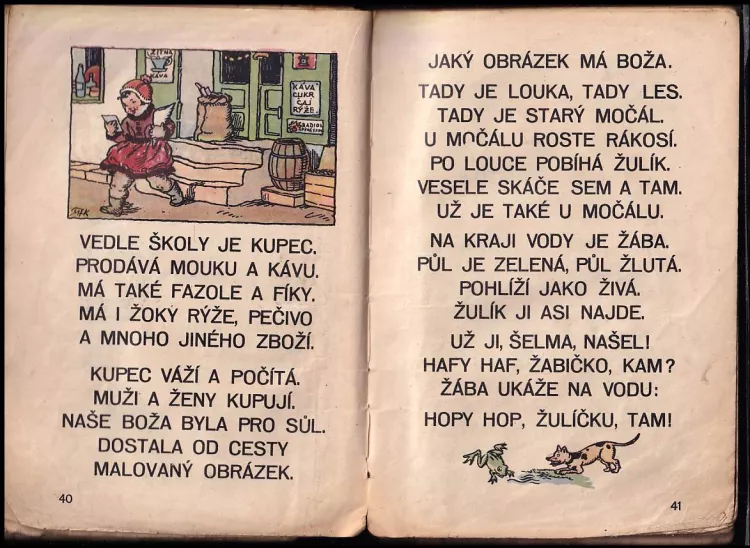 ŽITNÁ
KÁVA
KÁVA
CUKR
ČAJ
RÝŽE
RADION
VEDLE ŠKOLY JE KUPEC.
PRODÁVÁ MOUKU A KÁVU.
MÁ TAKÉ FAZOLE A FÍKY.
MÁ I ŽOKY RÝŽE, PEČIVO
A MNOHO JINÉHO ZBOŽÍ.
KUPEC VÁŽÍ A POČÍTÁ.
MUŽI A ŽENY KUPUJÍ.
NAŠE BOŽA BYLA PRO SŮL.
DOSTALA OD CESTY
MALOVANÝ OBRÁZEK.
40
JAKÝ OBRÁZEK MÁ BOŽA.
TADY JE LOUKA, TADY LES.
TADY JE STARÝ MOČÁL.
U MOČÁLU ROSTE RÁKOSÍ.
PO LOUCE POBÍHÁ ŽULÍK.
VESELE SKÁČE SEM A TAM.
UŽ JE TAKÉ U MOČÁLU.
NA KRAJI VODY JE ŽÁBA.
PŮL JE ZELENÁ, PŮL ŽLUTÁ.
POHLÍŽÍ JAKO ŽIVÁ.
ŽULÍK JI ASI NAJDE.
UŽ JI, ŠELMA, NAŠEL!
HAFY HAF, ŽABIČKO, KAM?
ŽÁBA UKÁŽE NA VODU:
HOPY HOP, ŽULÍČKU, TAM!
41